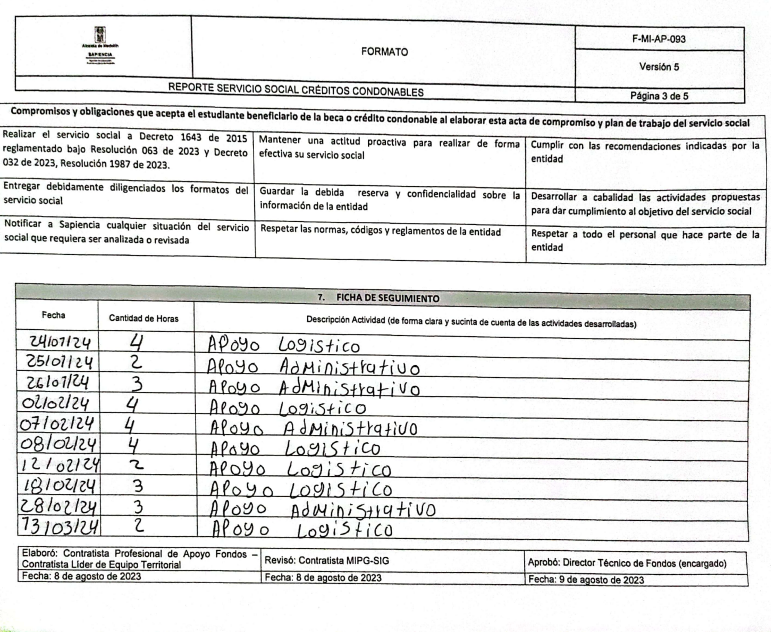 Alcaldía de Medellín
SAPIENCIA
FORMATO
F-MI-AP-093
Versión 5
REPORTE SERVICIO SOCIAL CRÉDITOS CONDONABLES
Página 3 de 5
Compromisos y obligaciones que acepta el estudiante beneficiario de la beca o crédito condonable al elaborar esta acta de compromiso y plan de trabajo del servicio social
Realizar el servicio social a Decreto 1643 de 2015
reglamentado bajo Resolución 063 de 2023 y Decreto
032 de 2023, Resolución 1987 de 2023.
Mantener una actitud proactiva para realizar de forma
efectiva su servicio social
Cumplir con las recomendaciones indicadas por la
entidad
Entregar debidamente diligenciados los formatos del
servicio social
Guardar la debida reserva y confidencialidad sobre la
información de la entidad
Desarrollar a cabalidad las actividades propuestas
para dar cumplimiento al objetivo del servicio social
Notificar a Sapiencia cualquier situación del servicio
social que requiera ser analizada o revisada
Respetar las normas, códigos y reglamentos de la entidad
Respetar a todo el personal que hace parte de la
entidad
7. FICHA DE SEGUIMIENTO
Fecha Cantidad de Horas Descripción Actividad (de forma clara y sucinta de cuenta de las actividades desarrolladas)
24/01/24 4 Apoyo Logistico
25/01/24 2 Apoyo Administrativo
26/01/24 3 Apoyo Administrativo
02/02/24 4 Apoyo Logistico
07/02/24 4 Apoyo Administrativo
08/02/24 4 Apoyo Logistico
12/02/24 2 Apoyo Logistico
18/02/24 3 Apoyo Logistico
28/02/24 3 Apoyo Administrativo
13/03/24 2 Apoyo Logistico
Elaboró: Contratista Profesional de Apoyo Fondos –
Contratista Líder de Equipo Territorial
Revisó: Contratista MIPG-SIG
Aprobó: Director Técnico de Fondos (encargado)
Fecha: 8 de agosto de 2023
Fecha: 8 de agosto de 2023
Fecha: 9 de agosto de 2023